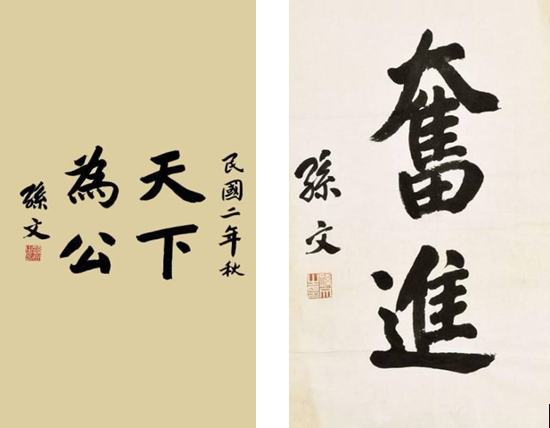 民國二年秋
天下
為公
孫文
奮進
孫文